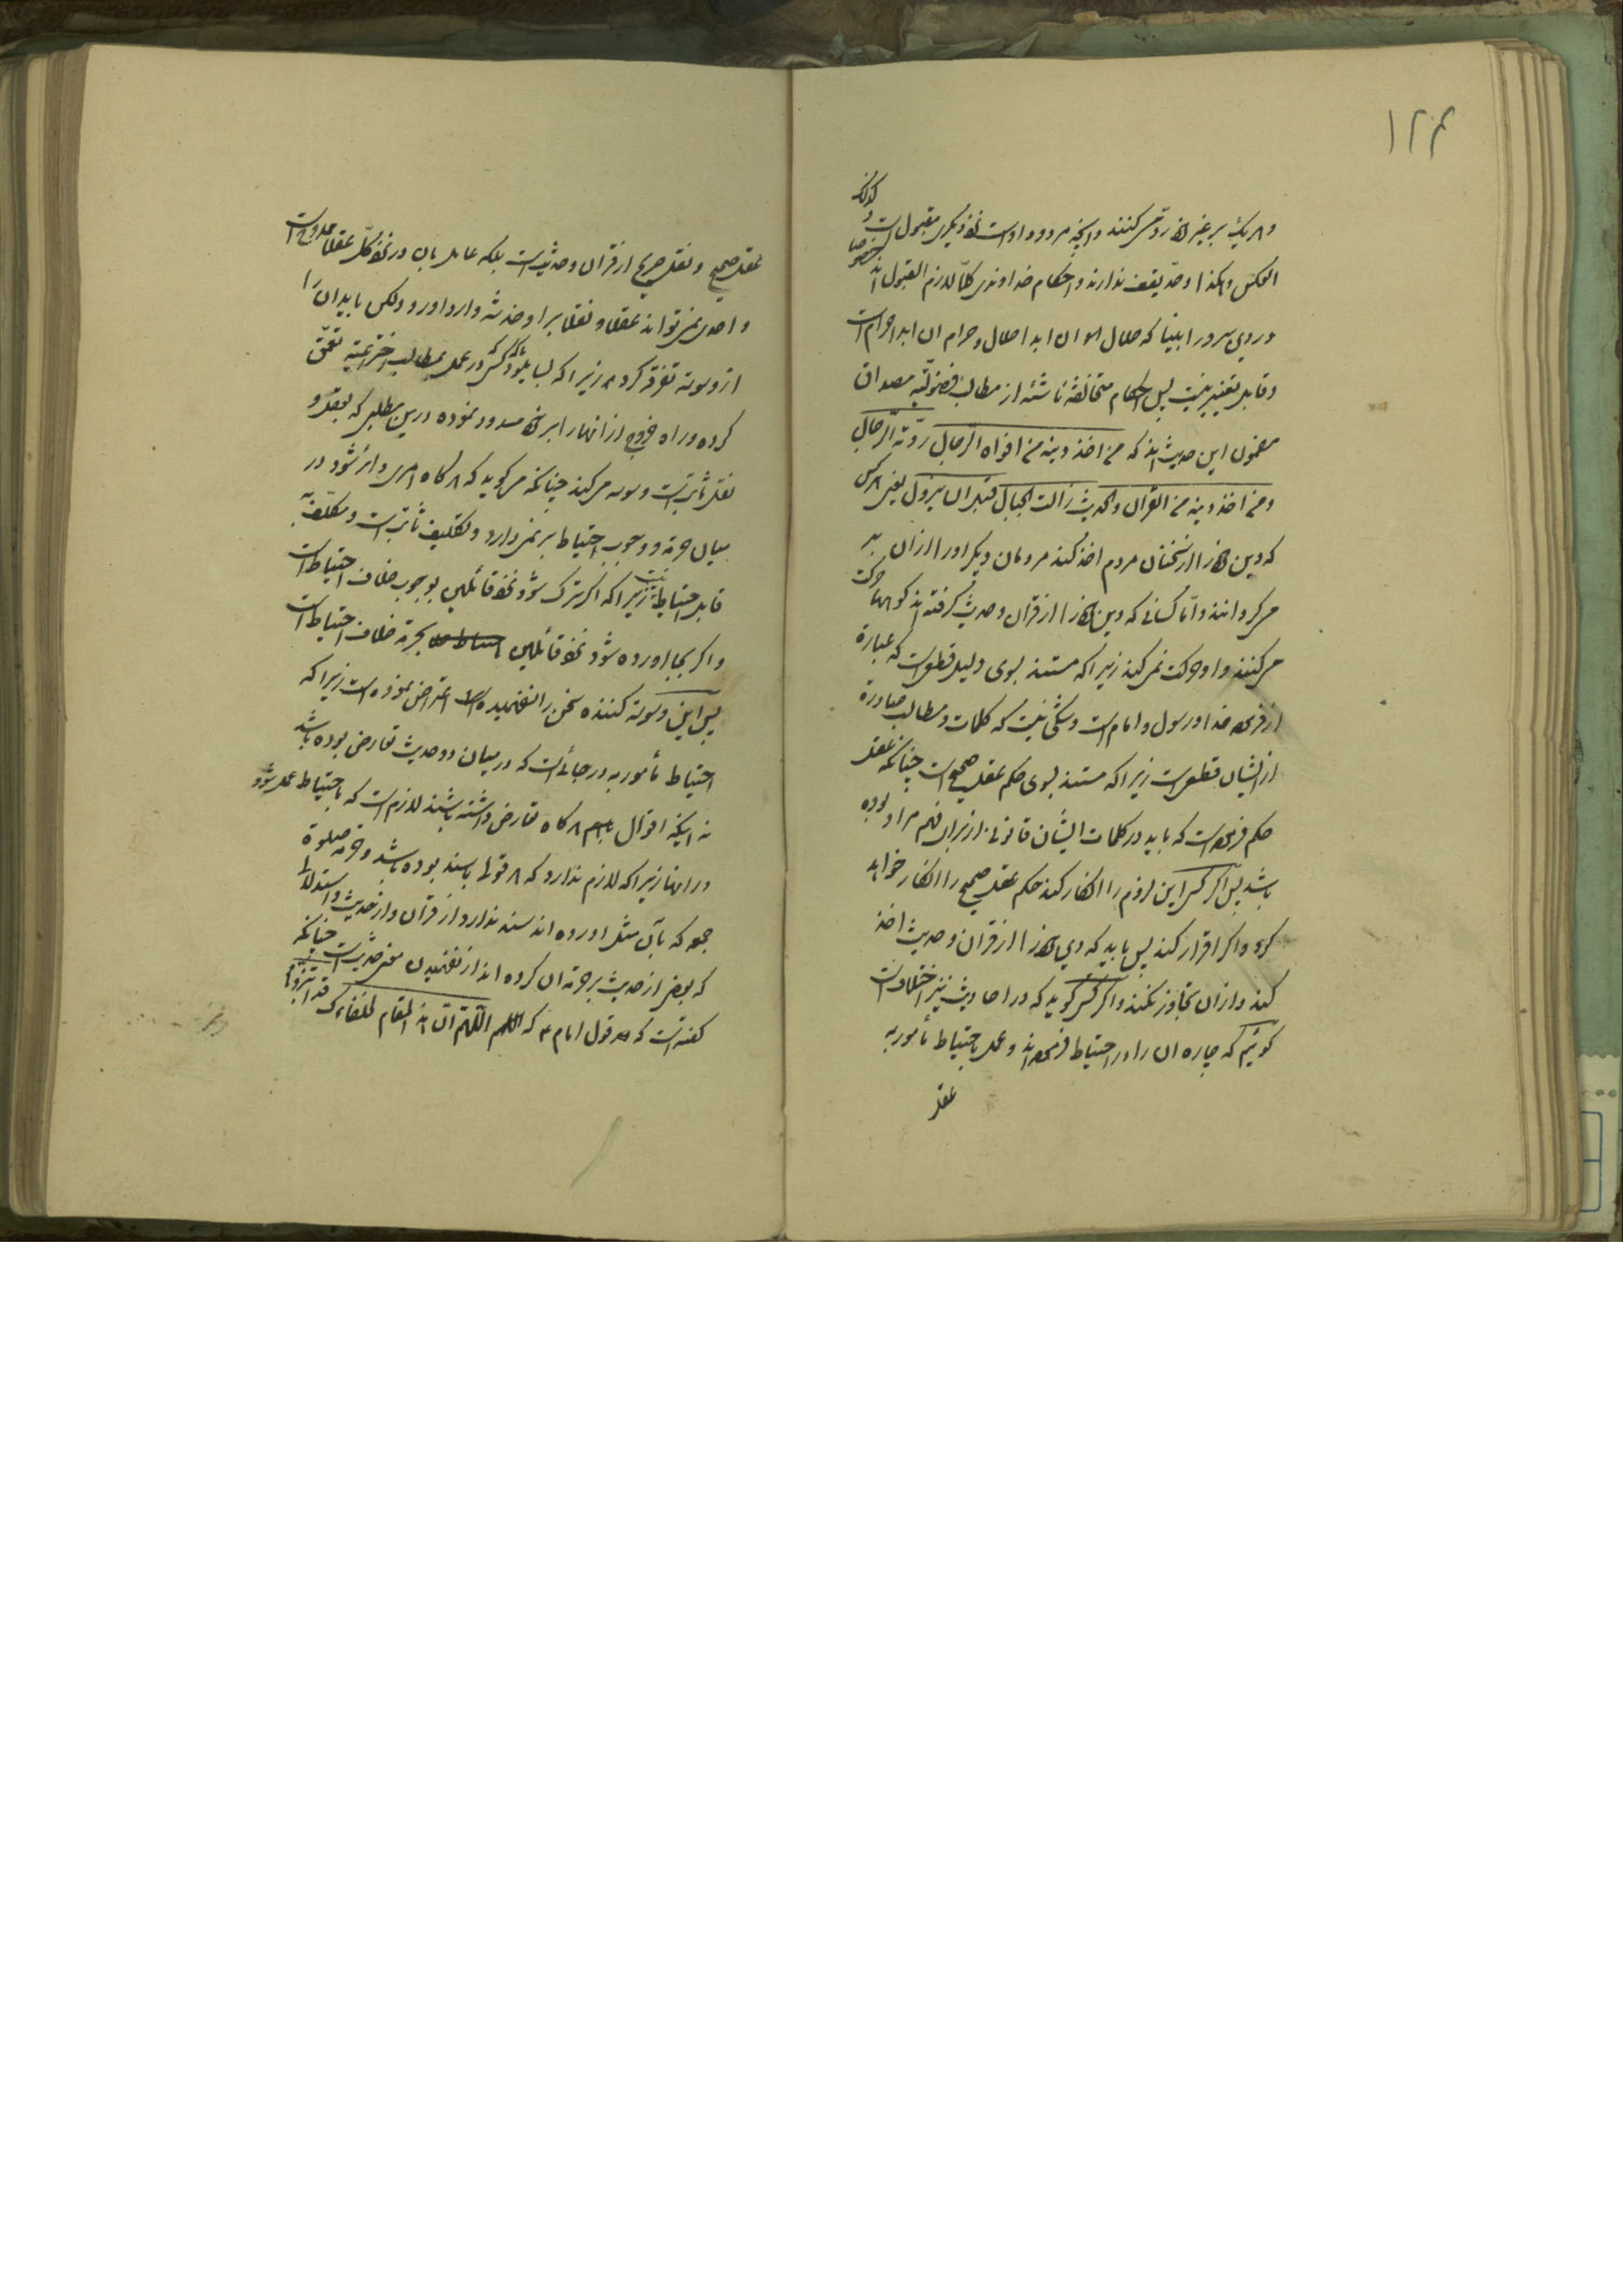 ۱۲۴
و هر یک بر غیر خود رد می کنند و آنچه مردود او است نزد دیگری مقبول است و کذلک
العکس و هکذا و حد یقف ندارند و احکام خداوندی کلّا لازم القبول اند خصوصا
در دین سرور انبیا که حلال او الی الابد حلال و حرام آن ابدا حرام است
و قابل تغییر نیست پس احکام متخالفه ناشئه از مطالب فضولیّه مصداق
مضمون این حدیث اند که من اخذ دینه من افواه الرجال ردّته الرّجال
و من اخذ دینه من القرآن والحدیث زالت الجبال قبل ان یزول یعنی هر کس
که دین خود را از سخنان مردم اخذ کند مردمان دیگر او را از آن بر
می گردانند و امّا کسانی که دین خود را از قرآن و حدیث گرفته اند کوهها حرکت
می کنند و او حرکت نمی کند زیرا که مستند بسوی دلیل قطعی است که عبارة
از فرموده خدا و رسول و امام است و شکّی نیست که کلمات و مطالب صادرة
از ایشان قطعی است زیرا که مستند بسوی حکم عقل صحیح است چنانکه عقل
حکم فرموده است که باید در کلمات ایشان قانونی از برای فهم مراد بوده
باشد پس اگر کسی این لزوم را انکار کند حکم عقل صحیح را انکار خواهد
کرد و اگر اقرار کند پس باید که دین خود را از قرآن و حدیث اخذ
کند و از آن تجاوز نکند و اگر کسی گوید که در احادیث نیز اختلاف است
گوئیم که چاره آن را در احتیاط فرموده اند و عمل باحتیاط مأمور به
عقل
عقل صحیح و نقل صریح از قرآن و حدیث است بلکه عامل بآن در نزد کلّ عقلا ممدوح است
و احدی نمی تواند عقلا و نقلا بر او خدشه وارد آورد ولکن باید آن را
از وسوسه تفرقه کرد زیرا که بسا میشود که کسی در عمل بمطالب اختراعیّه تعمّق
کرده و راه خروج از آنها را بر خود مسدود نموده در این مطلبی که بعقل و
نقل ثابت است وسوسه می کند چنانکه می گوید که هر گاه امری دائر شود در
میان حرمة و وجوب احتیاط بر نمی دارد و تکلیف ثابت است و مکلّف به
قابل احتیاط نیست زیرا که اگر ترک شود نزد قائلین بوجوب خلاف احتیاط است
و اگر بجا آورده شود نزد قائلین بحرمة خلاف احتیاط است
پس این وسوسه کننده سخن را نفهمیده است اعتراض نموده است زیرا که
احتیاط مأمور به در جائی است که در میان دو حدیث تعارض بوده باشد
نه اینکه اقوال باهم هر گاه تعارض داشته باشند لازم است که باحتیاط عمل شود
در آنها زیرا که لازم ندارد که هر قولی با سند بوده باشد و حرمة صلوة
جمعه که بآن مثل آورده اند سند ندارد از قرآن و از حدیث و استدلالی
که بعضی از حدیث بر حرمة آن کرده اند از نفهمیدن معنی حدیث است چنانکه
گفته است که قول امام ع که اللهم انّ هذا المقام لخلفائک قد ابتزّوها